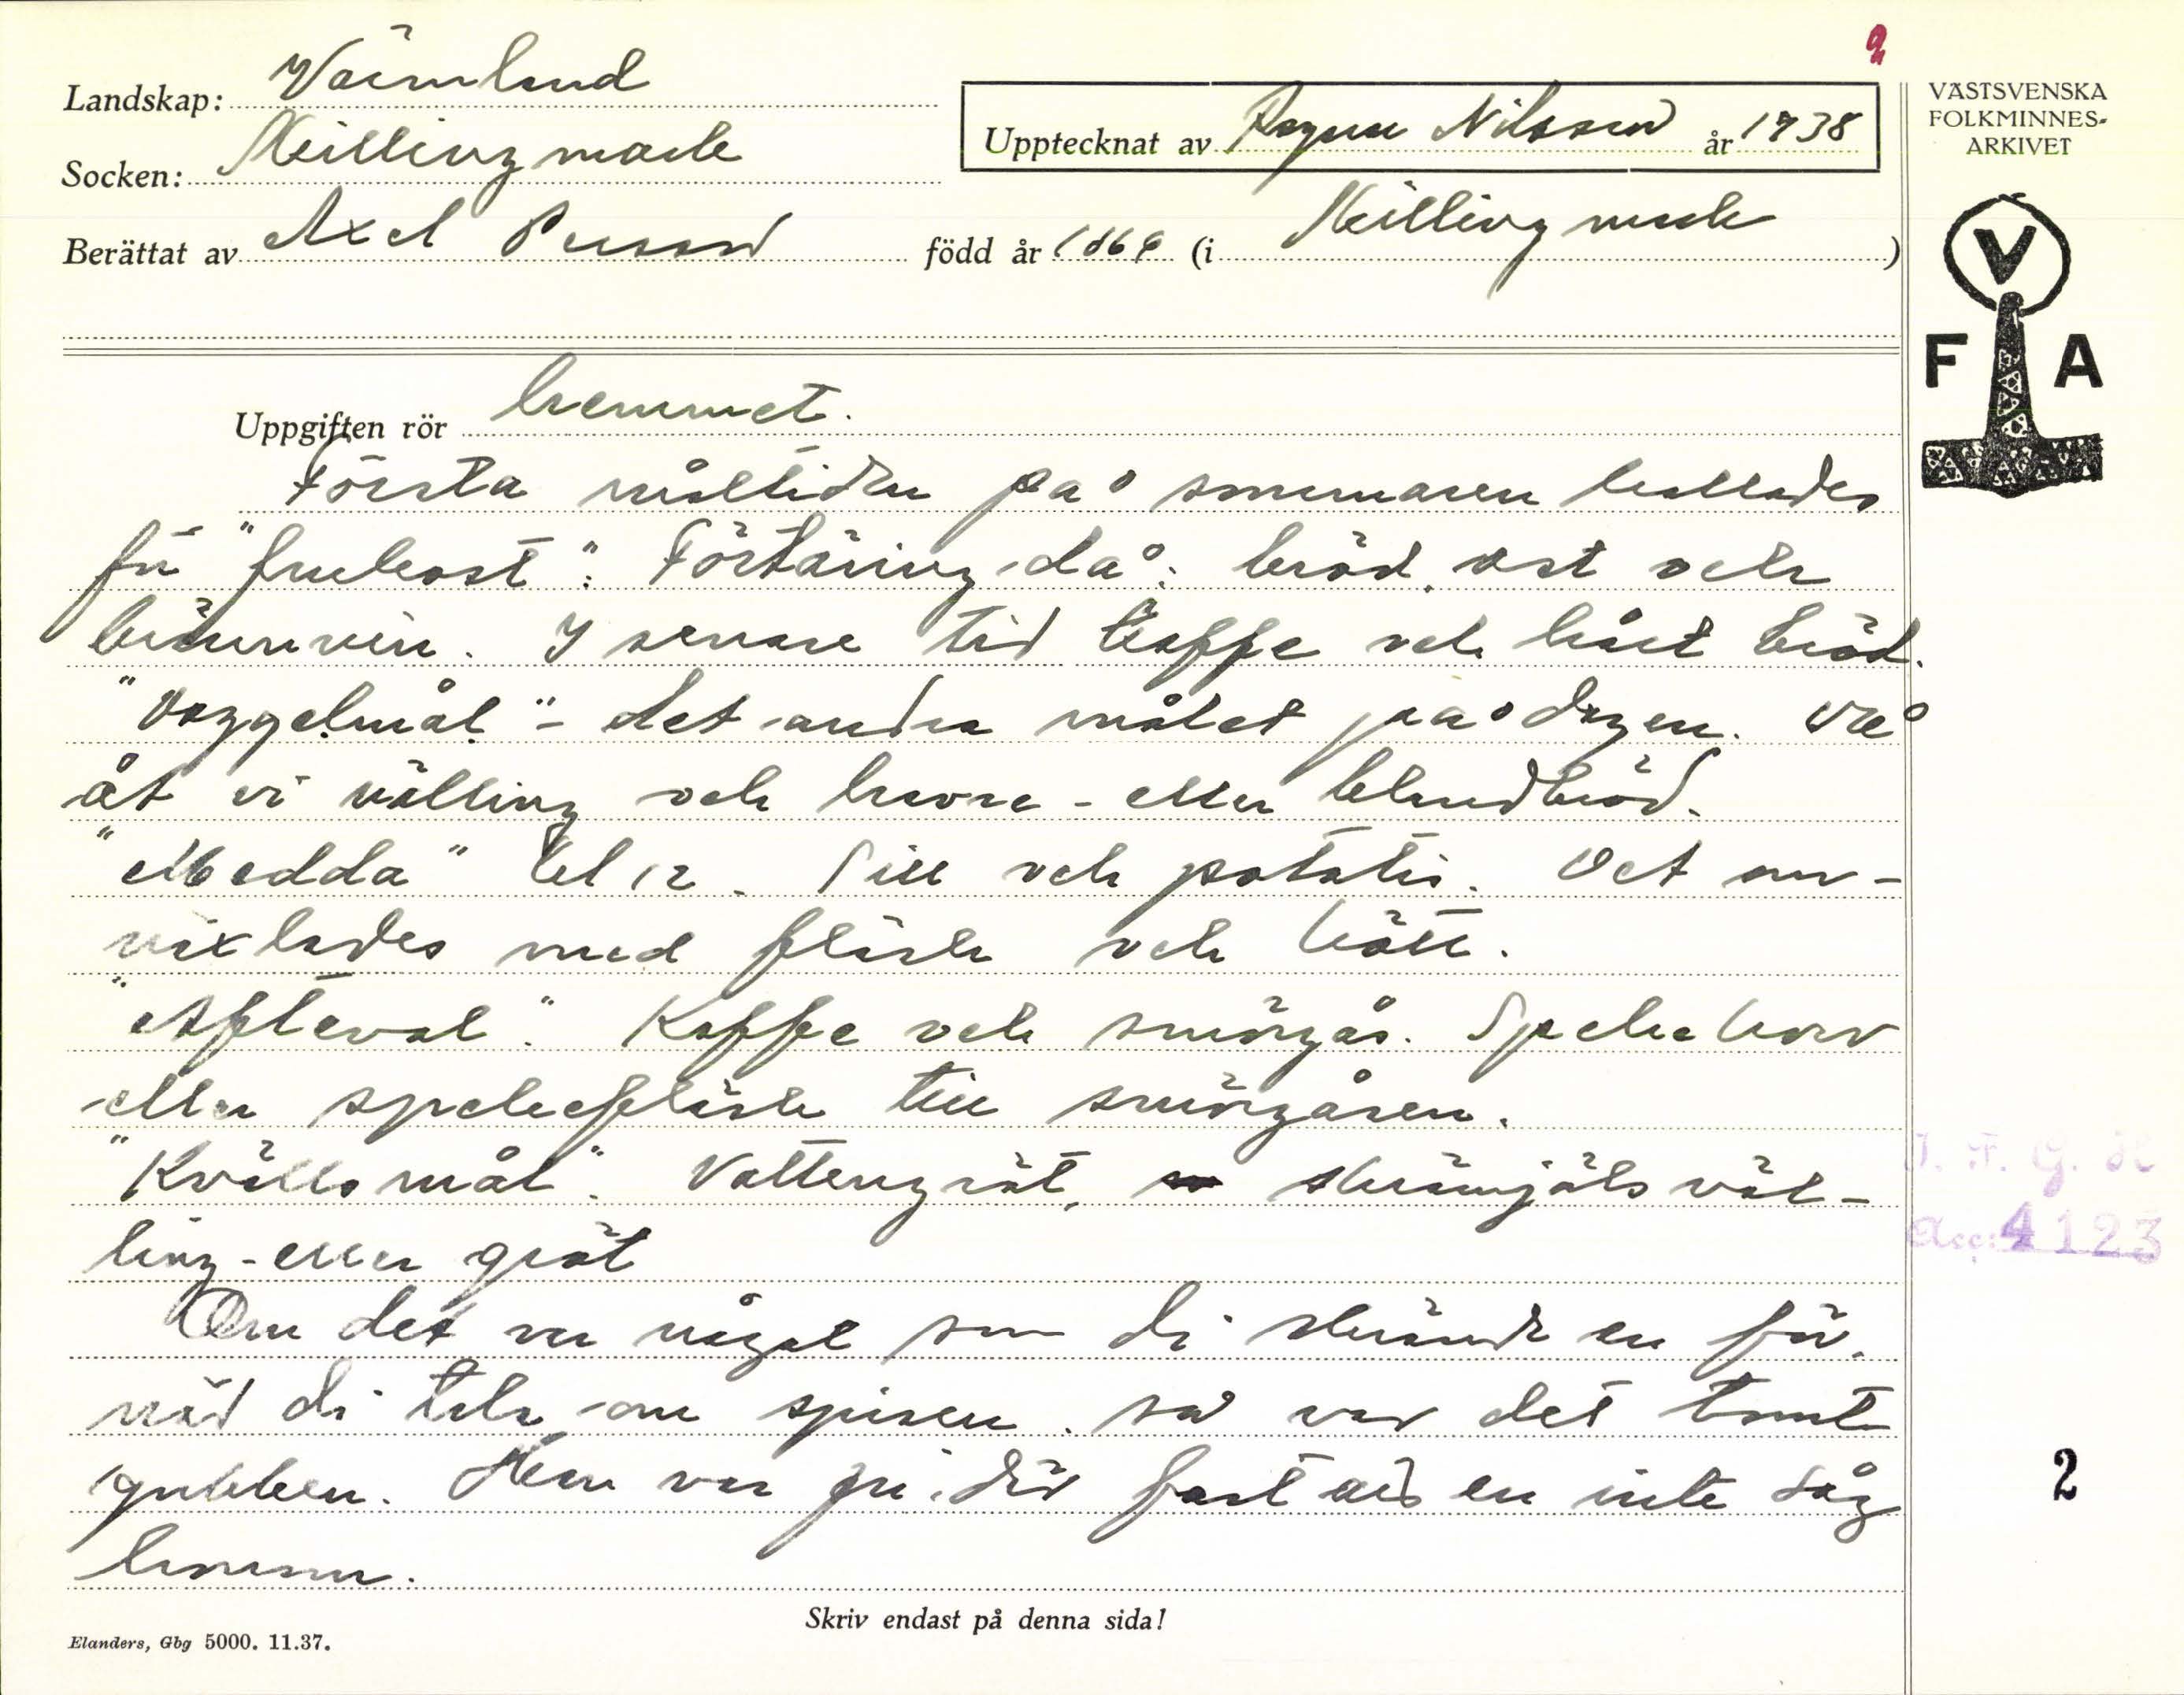 2
Landskap: Värmland
Socken: Skillingmark
Berättat av Axel Persson född år 1869 (i Skillingmark )
Upptecknat av Ragnar Nilsson år 1938
VÄSTSVENSKA
FOLKMINNES-
ARKIVET
V
F A
Uppgiften rör hemmet.
Första måltiden på sommaren kallades
för "frukost". Förtäring då: bröd, ost och
brännvin. I senare tid kaffe och hårt bröd.
"Duggelmål" - det andra målet på dagen. Då
åt vi välling och havre- eller blandbröd.
"Medda" kl 12. Sill och potatis. Det om-
växlades med fläsk och kött.
"Afteval". Kaffe och smörgås. Spekekorv
eller spekefläsk till smörgåsen.
"Kvällsmål". Vattengröt, skrämjöls väl-
ling - eller gröt
Om det va något som di skrämde en för,
när di tala om spisen, så var det tomt
gubben. Han var ju där fast en inte såg
honom.
Skriv endast på denna sida!
Elanders, Gbg 5000. 11.37.
I. F. G. H
Acc: 4123
2